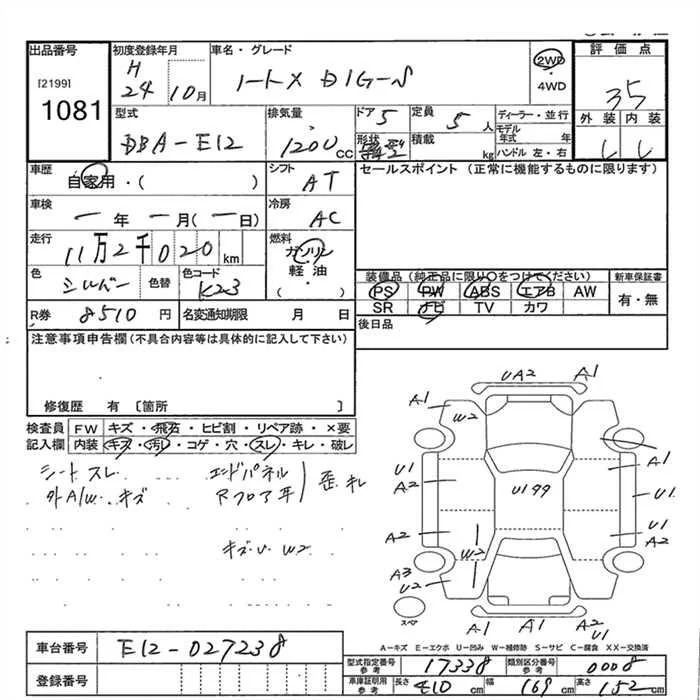 出品番号
[2199]
1081
初度登録年月
H
24
10月
車名・グレード
ノート X DIG-S
2WD
・
4WD
評価点
3.5
外装 内装
型式
DBA-E12
排気量
1200 CC
ドア 5
形状
定員 5人
積載 kg
ディーラー・並行
モデル年式 年
ハンドル 左・右
車歴
自家用・( )
シフト
AT
セールスポイント(正常に機能するものに限ります)
車検
一年 一月(一日)
冷房
AC
走行
11万2千020km
燃料
ガソリン
軽油・
( )
色
シルバー
色替
色コード
K23
装備品(純正品に限り〇をつけてください)
新車保証書
PS PW ABS エアB AW
有・無
SR ナビ TV カワ
R券 8510円
名変通知期限 月 日
後日品
注意事項申告欄(不具合内容等は具体的に記入して下さい)
修復歴 有 〔箇所 〕
検査員 FW キズ・飛石・ヒビ割・リペア跡・×要
記入欄 内装 キズ・汚れ・コゲ・穴・スレ・キレ・破レ
シートスレ
外A/W キズ
エンドパネル
Rフロア耳
歪キレ
キズ・U W2
UA2 A1
A1
W2
A1
U1
A2
U199
U1
A2
U1
A2
W2
A3
U2
A1
スペア
A1 A1 A2
U1
A-キズ E-エクボ U-凹み W-補修跡 S-サビ C-腐食 XX-交換済
車台番号 E12-027238
登録番号
型式指定番号 参考 17338
類別区分番号 参考 0008
車庫証明用 参考 長さ 410 cm 幅 169 cm 高さ 152 cm